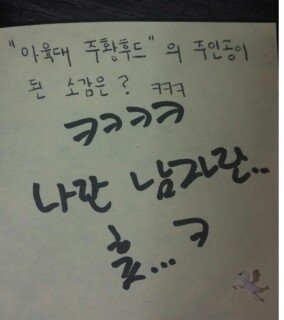 "아육대 주황후드" 의 주인공이
된 소감은? ㅋㅋㅋ
ㅋㅋㅋㅋ
나란 남자란..
훗...ㅋ